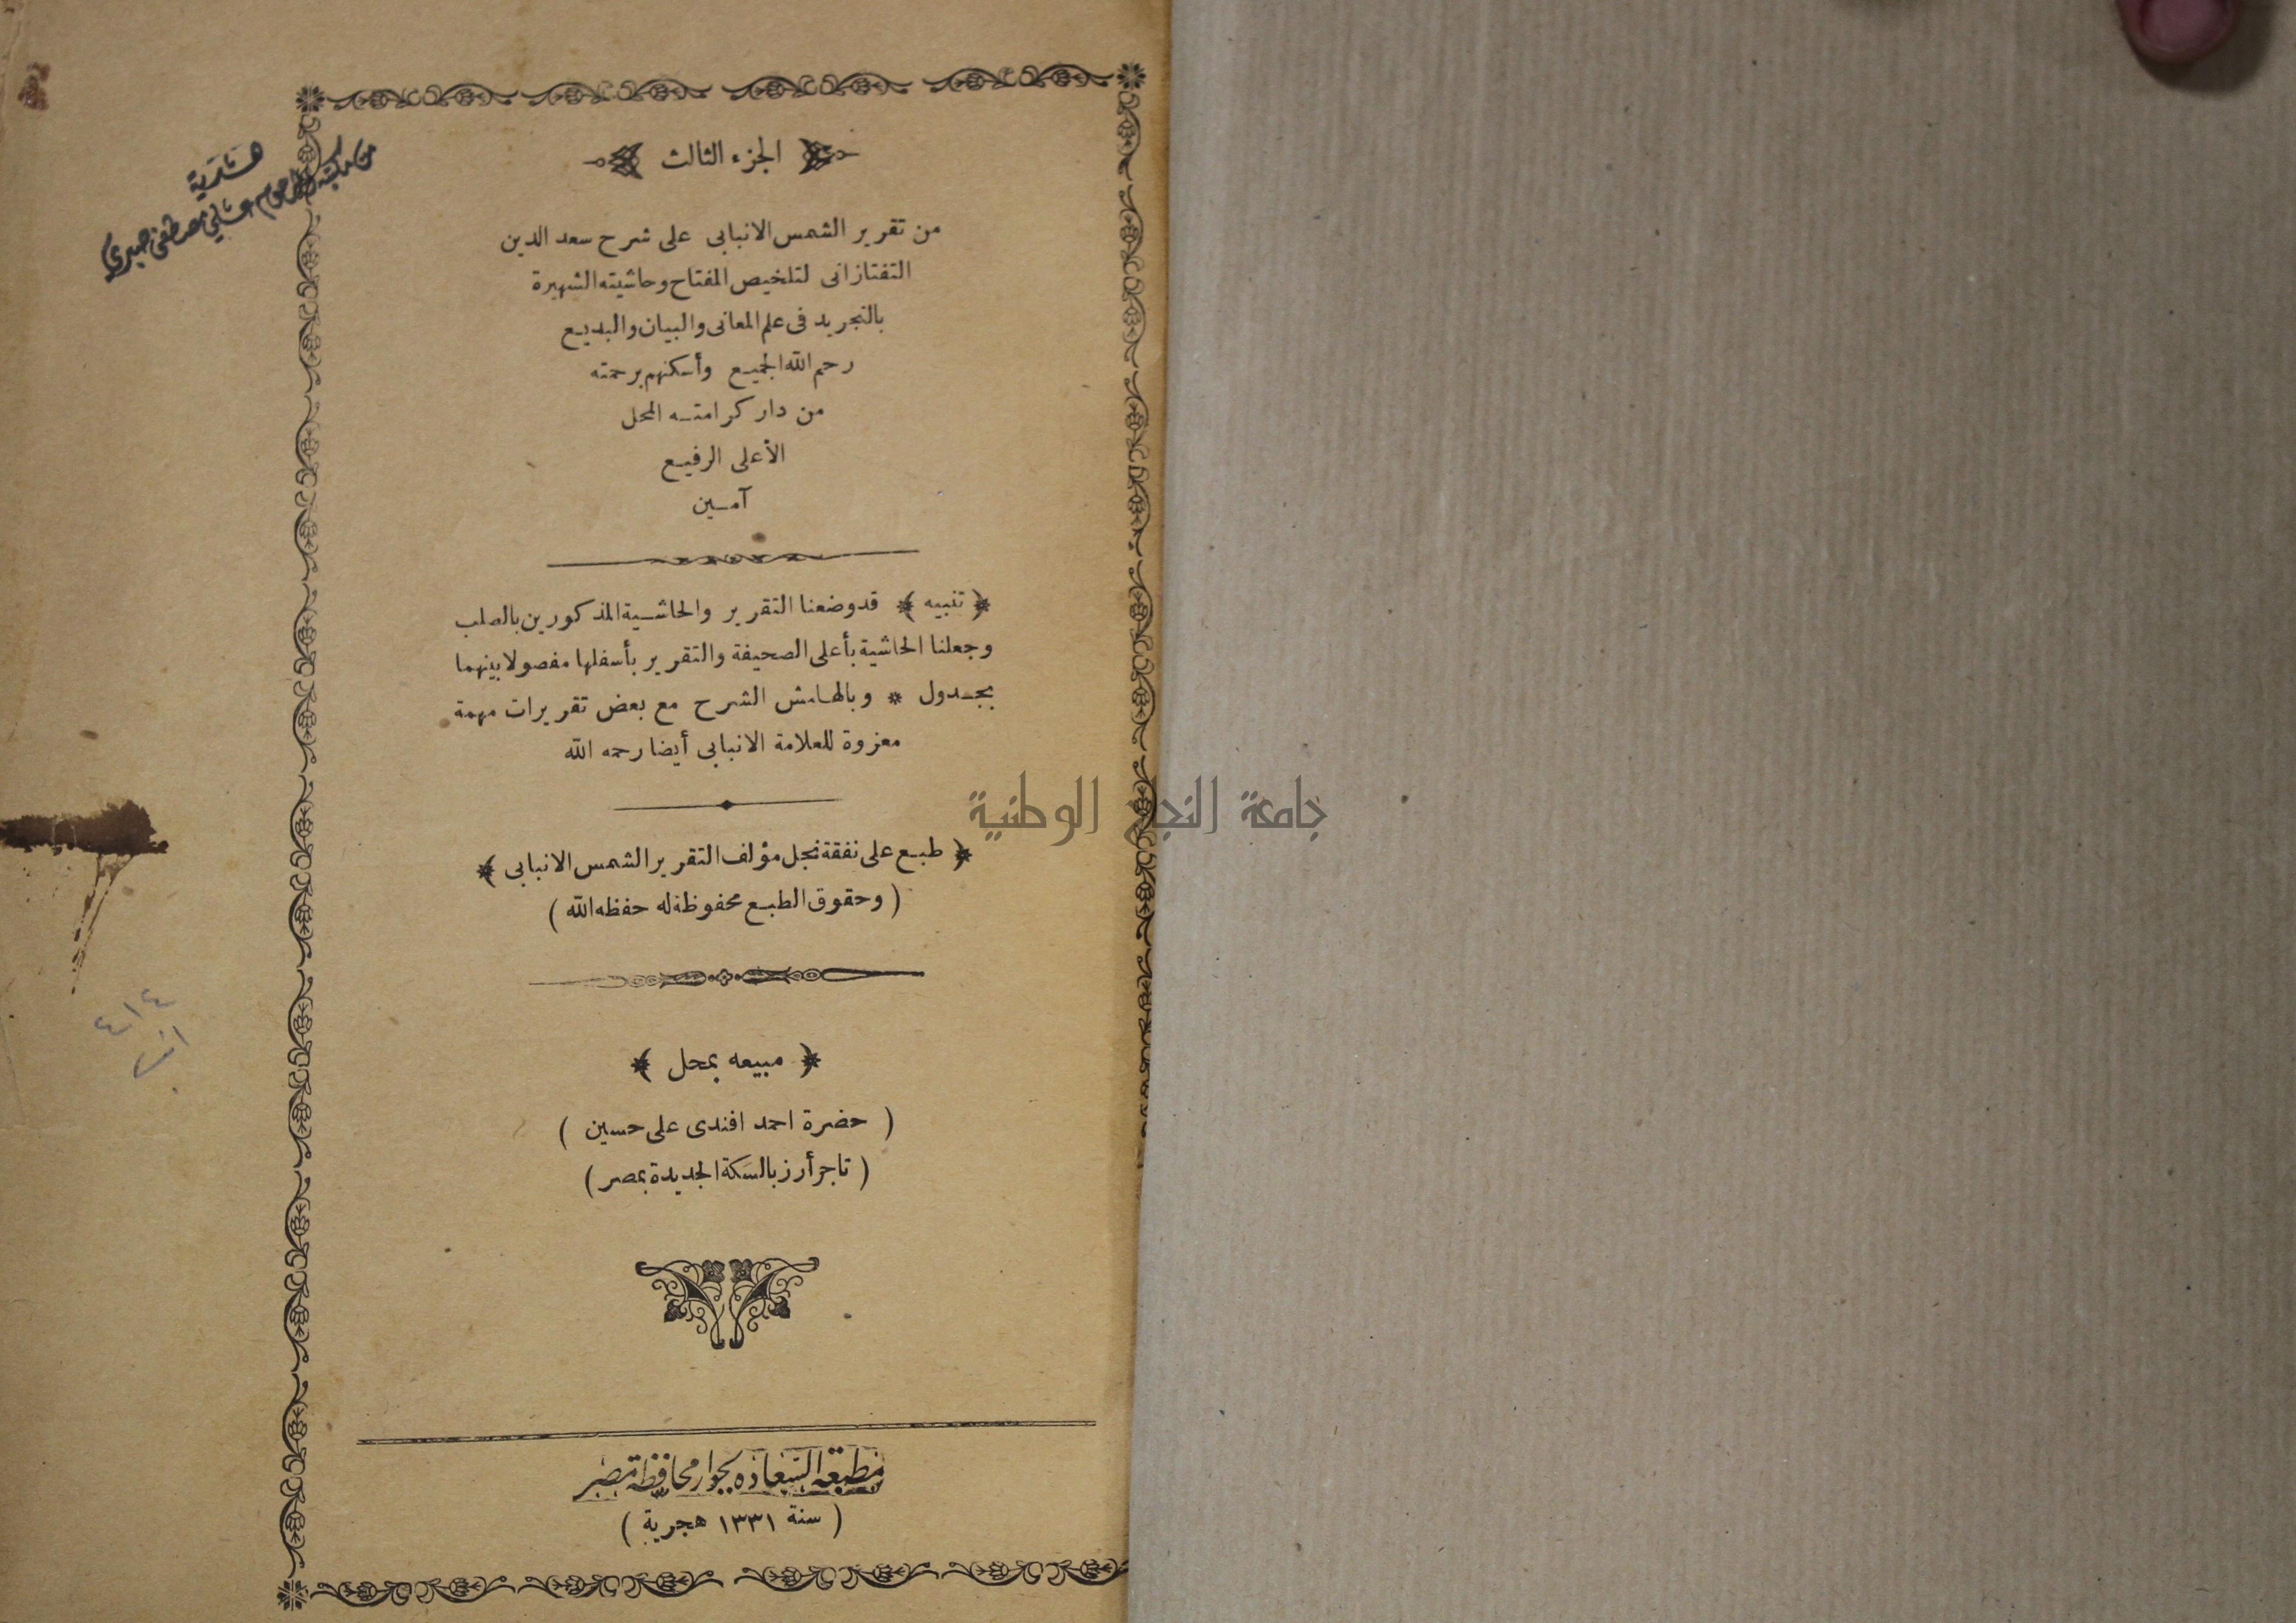 الجزء الثالث
من تقرير الشمس الانبابى على شرح سعد الدين
التفتازانى لتلخيص المفتاح وحاشيته الشهيرة
بالتجريد فى علم المعانى والبيان والبديع
رحم الله الجميع وأسكنهم برحمته
من دار كرامته المحل
الأعلى الرفيع
آمين
﴿ تنبيه ﴾ قد وضعنا التقرير والحاشية المذكورين بالصلب
وجعلنا الحاشية بأعلى الصحيفة والتقرير بأسفلها مفصولا بينهما
بجدول * وبالهامش الشرح مع بعض تقريرات مهمة
معزوة للعلامة الانبابى أيضا رحمه الله
﴿ طبع على نفقة نجل مؤلف التقرير الشمس الانبابى ﴾
( وحقوق الطبع محفوظة له حفظه الله )
﴿ مبيعه بمحل ﴾
( حضرة احمد افندى على حسين )
( تاجر أرز بالسكة الجديدة بمصر )
مطبعة السعادة بجوار محافظة مصر
( سنة ١٣٣١ هجرية )
من مكتبة المرحوم مصطفى
جامعة النجاح الوطنية